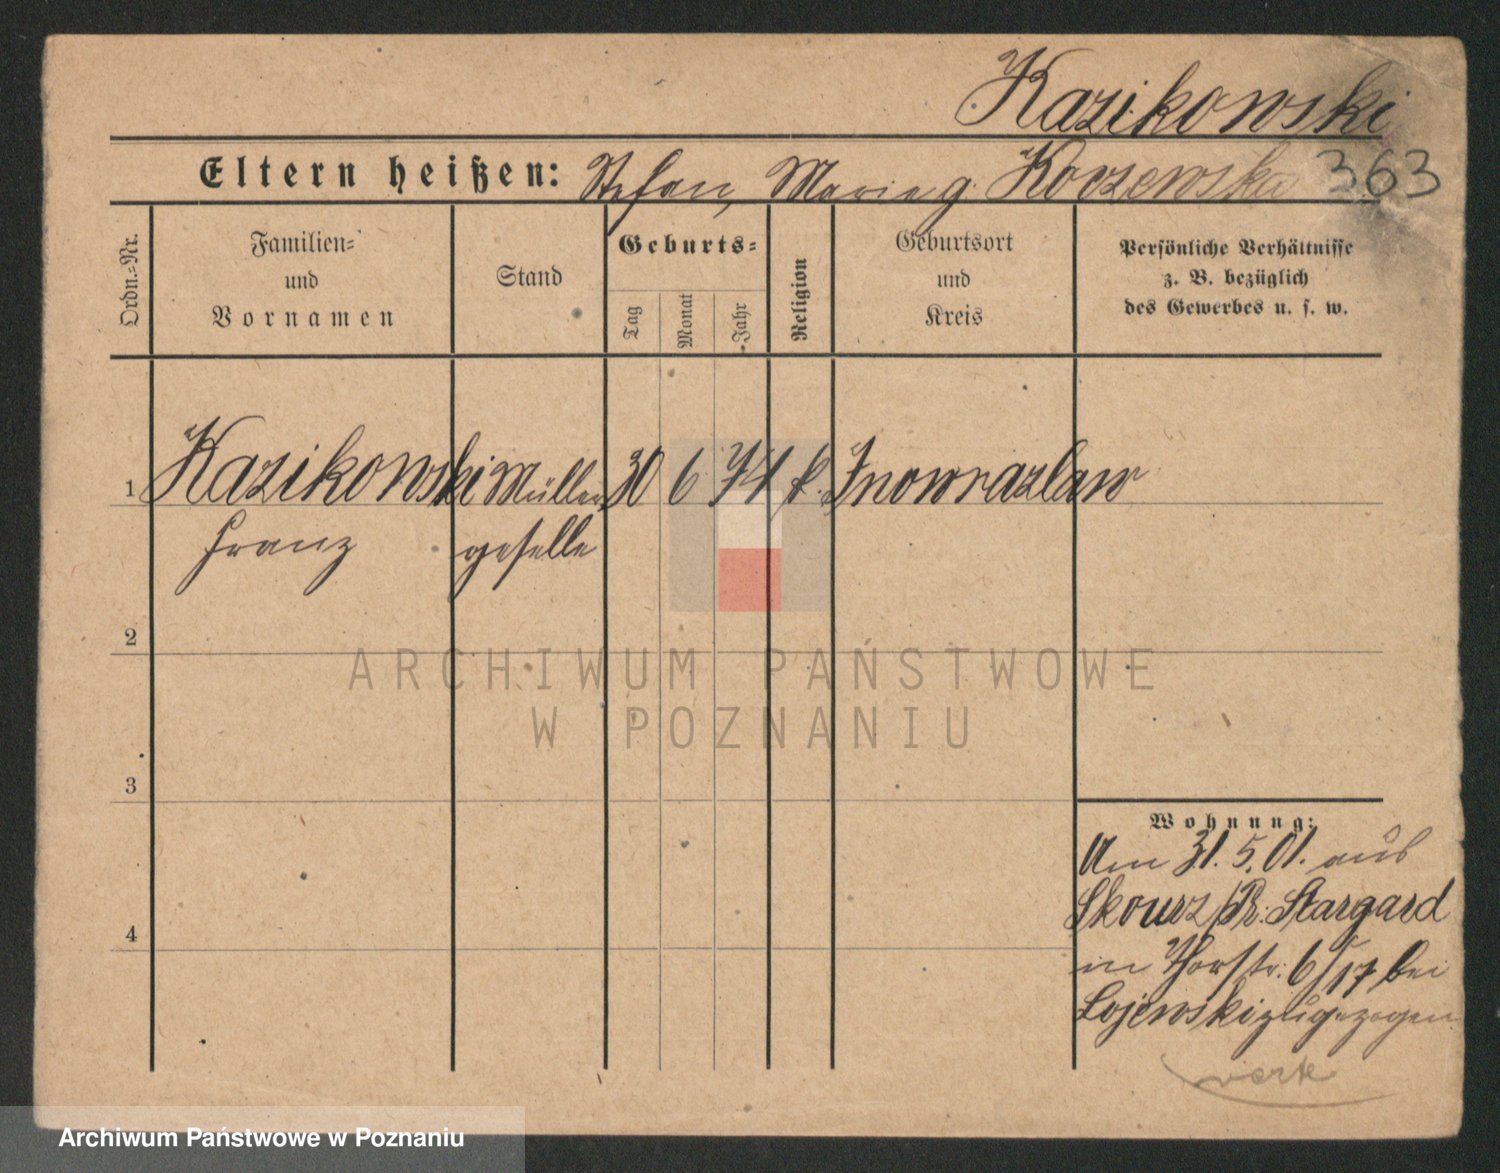 Kazikowski
Eltern heißen: Stefan, Marie g. Korzewska 363
Ordn.=Nr.
Familien=
und
Vornamen
Stand
Geburts=
Tag
Monat
Jahr
Religion
Geburtsort
und
Kreis
Persönliche Verhältnisse
z. B. bezüglich
des Gewerbes u. s. w.
1 Kazikowski Müller 30 6 74 k. Inowrazlaw
Franz geselle
2
ARCHIWUM PAŃSTWOWE
W POZNANIU
3
Wohnung:
Am 31.5.01. aus
Skourz/Pr. Stargard
in Thorstr. 6/17 bei
Lojewski zugezogen
verte
4
Archiwum Państwowe w Poznaniu